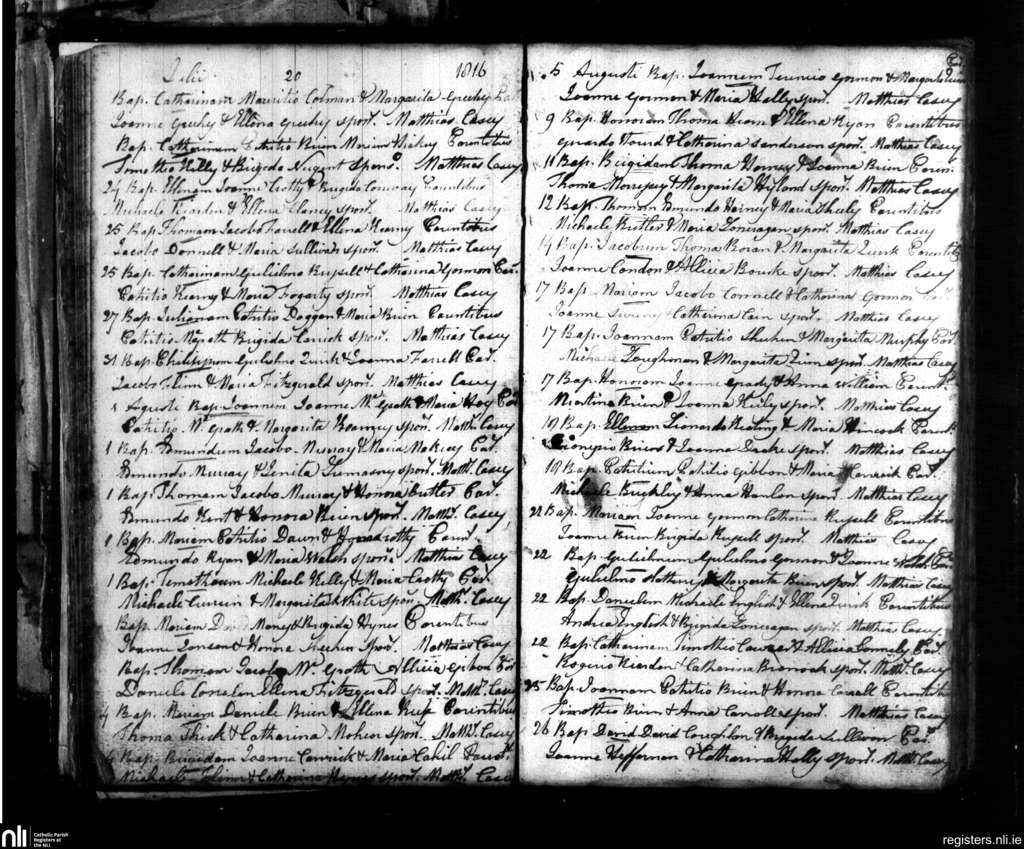 Julii 20 1816
Bap. Catharinam Mauritio Colman & Margarita Greehy Par
Joanne Greehy & Ellena Greehy Spons. Matthias Casey
Bap. Catharinam Patritio Brien Mariam Hickey Parentibus
Timotheo Kelly & Brigida Nugent Spons. Matthias Casey
24 Bap. Ellenam Joanne Crotty & Brigida Conway Parentibus
Michaele Rearden & Ellena Clancy spons. Matthias Casey
25 Bap. Thomam Jacobo Farrell & Ellena Kearny Parentibus
Jacobo Donnell & Maria Sullivan spons. Matthias Casey
25 Bap. Catharinam Gulielmo Russell & Catharina Gorman Par.
Patritio Kearny & Maria Fogarty spons. Matthias Casey
27 Bap. Julianam Patritio Doggan & Maria Brien Parentibus
Patritio McGrath Brigida Carrick spons. Matthias Casey
31 Bap. Philippum Gulielmo Quirk & Joanna Farrell Par.
Jacobo Flinn & Maria Fitzgerald spons. Matthias Casey
1 Agusti Bap. Joannem Joanne McGrath & Maria Hoy Par
Patritio McGrath & Margarita Kearney spons. Matths. Casey
1 Bap. Edmundum Jacobo Murray & Maria Par.
Edmundo Murray & spons. Matths. Casey
1 Bap. Thomam Jacobo Murray & Honora Butler Par.
Edmundo Kent & Honora Brien spons. Matths. Casey
1 Bap. Mariam Patritio Daun & Parent.
Edmundo Ryan & Maria Walsh spons. Matthias Casey
1 Bap. Timotheum Michaele Kelly & Maria Crotty Par.
Michaele Curtin & Margarita White spons. Matths. Casey
Bap. Mariam David Money & Brigida Hynes Parentibus
Joanne Lonson & Honora Meehan Spons. Matthias Casey
Bap. Thomam Jacobo McGrath Allicia Gibbon Par
Daniele Ellena Fitzgerald spons. Matths. Casey
4 Bap. Mariam Daniele Brien & Ellena Keefe Parentibus
Thoma Shick & Catharina Meheir spons. Matths. Casey
Bap. Brigidam Joanne Conrick & Maria Cahil Parent.
Michaele Flinn & Catharina Spons. Matths. Casey
5 Augusti Bap. Joannem Terencio Gorman & Margarita
Joanne Gorman & Maria Hally spons. Matthias Casey
9 Bap. Honoram Thoma Hearn & Ellena Ryan Parentibus
& Catharina Sanderson spons. Matthias Casey
11 Bap. Brigidam Thoma & Joanna Brien Paren.
Thoma & Margarita Hyland spons. Matthias Casey
12 Bap. Thomam Edmundo Harney & Maria Sheely Parentibus
Michaele Butler & Maria Loneragan spons. Matthias Casey
14 Bap. Jacobum Thoma Boran & Margarita Quirk Parentib
Joanne Condon & Allicia Bourke spons. Matthias Casey
17 Bap. Mariam Jacobo Connell & Catharina Gorman Par.
Joanne Sweeny & Catherina Cain spons. Matthias Casey
17 Bap. Joannam Patritio Sheehen & Margarita Murphy Par.
Michaele Loughman & Margarita spons. Matthias Casey
17 Bap. Honoram Joanne Grady & Anna William Parent.
Martino Brien & Joanna Kiely spons. Matthias Casey
19 Bap. Ellenam Leonardo Keating & Maria Hancock Parent
Brien & Joanna spons. Matthias Casey
19 Bap. Patritium Patritio Gibbon & Maria Conrick Par.
Michaele Buckley & Anna Hanlon spons. Matthias Casey
22 Bap. Mariam Joanne Gorman Catharina Russell Parentibus
Joanne Brien Brigida Russell spons. Matthias Casey
22 Bap. Gulielmum Gulielmo Gorman & Joanna Walsh Par
Gulielmo & Margarita Brien spons. Matthias Casey
22 Bap. Danielem Michaele English & Ellena Quirk Parentibus
Andrea English & Brigida Loneragan spons. Matthias Casey
22 Bap. Catharinam Timothio & Allicia Par.
Rogerio Riardon & Catharina spons. Matths. Casey
25 Bap. Joannam Patritio Brien & Honora Carroll Parentibus
Timotheo Brien & Anna Carroll spons. Matthias Casey
26 Bap. David David Coughlan & Brigida Sullivan Par.
Joanne Heffernan & Catharina Hally spons. Matths. Casey
nli Catholic Parish
Registers at
the NLI
registers.nli.ie